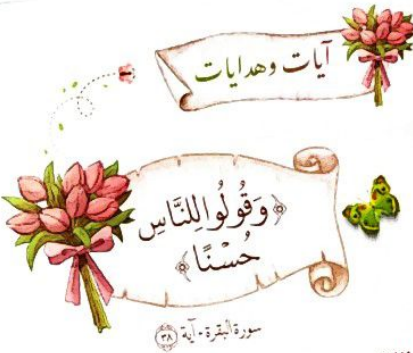 آيات وهدايات
﴿وَقُولُوا لِلنَّاسِ
حُسْنًا﴾
سورة البقرة - آية ٣٨